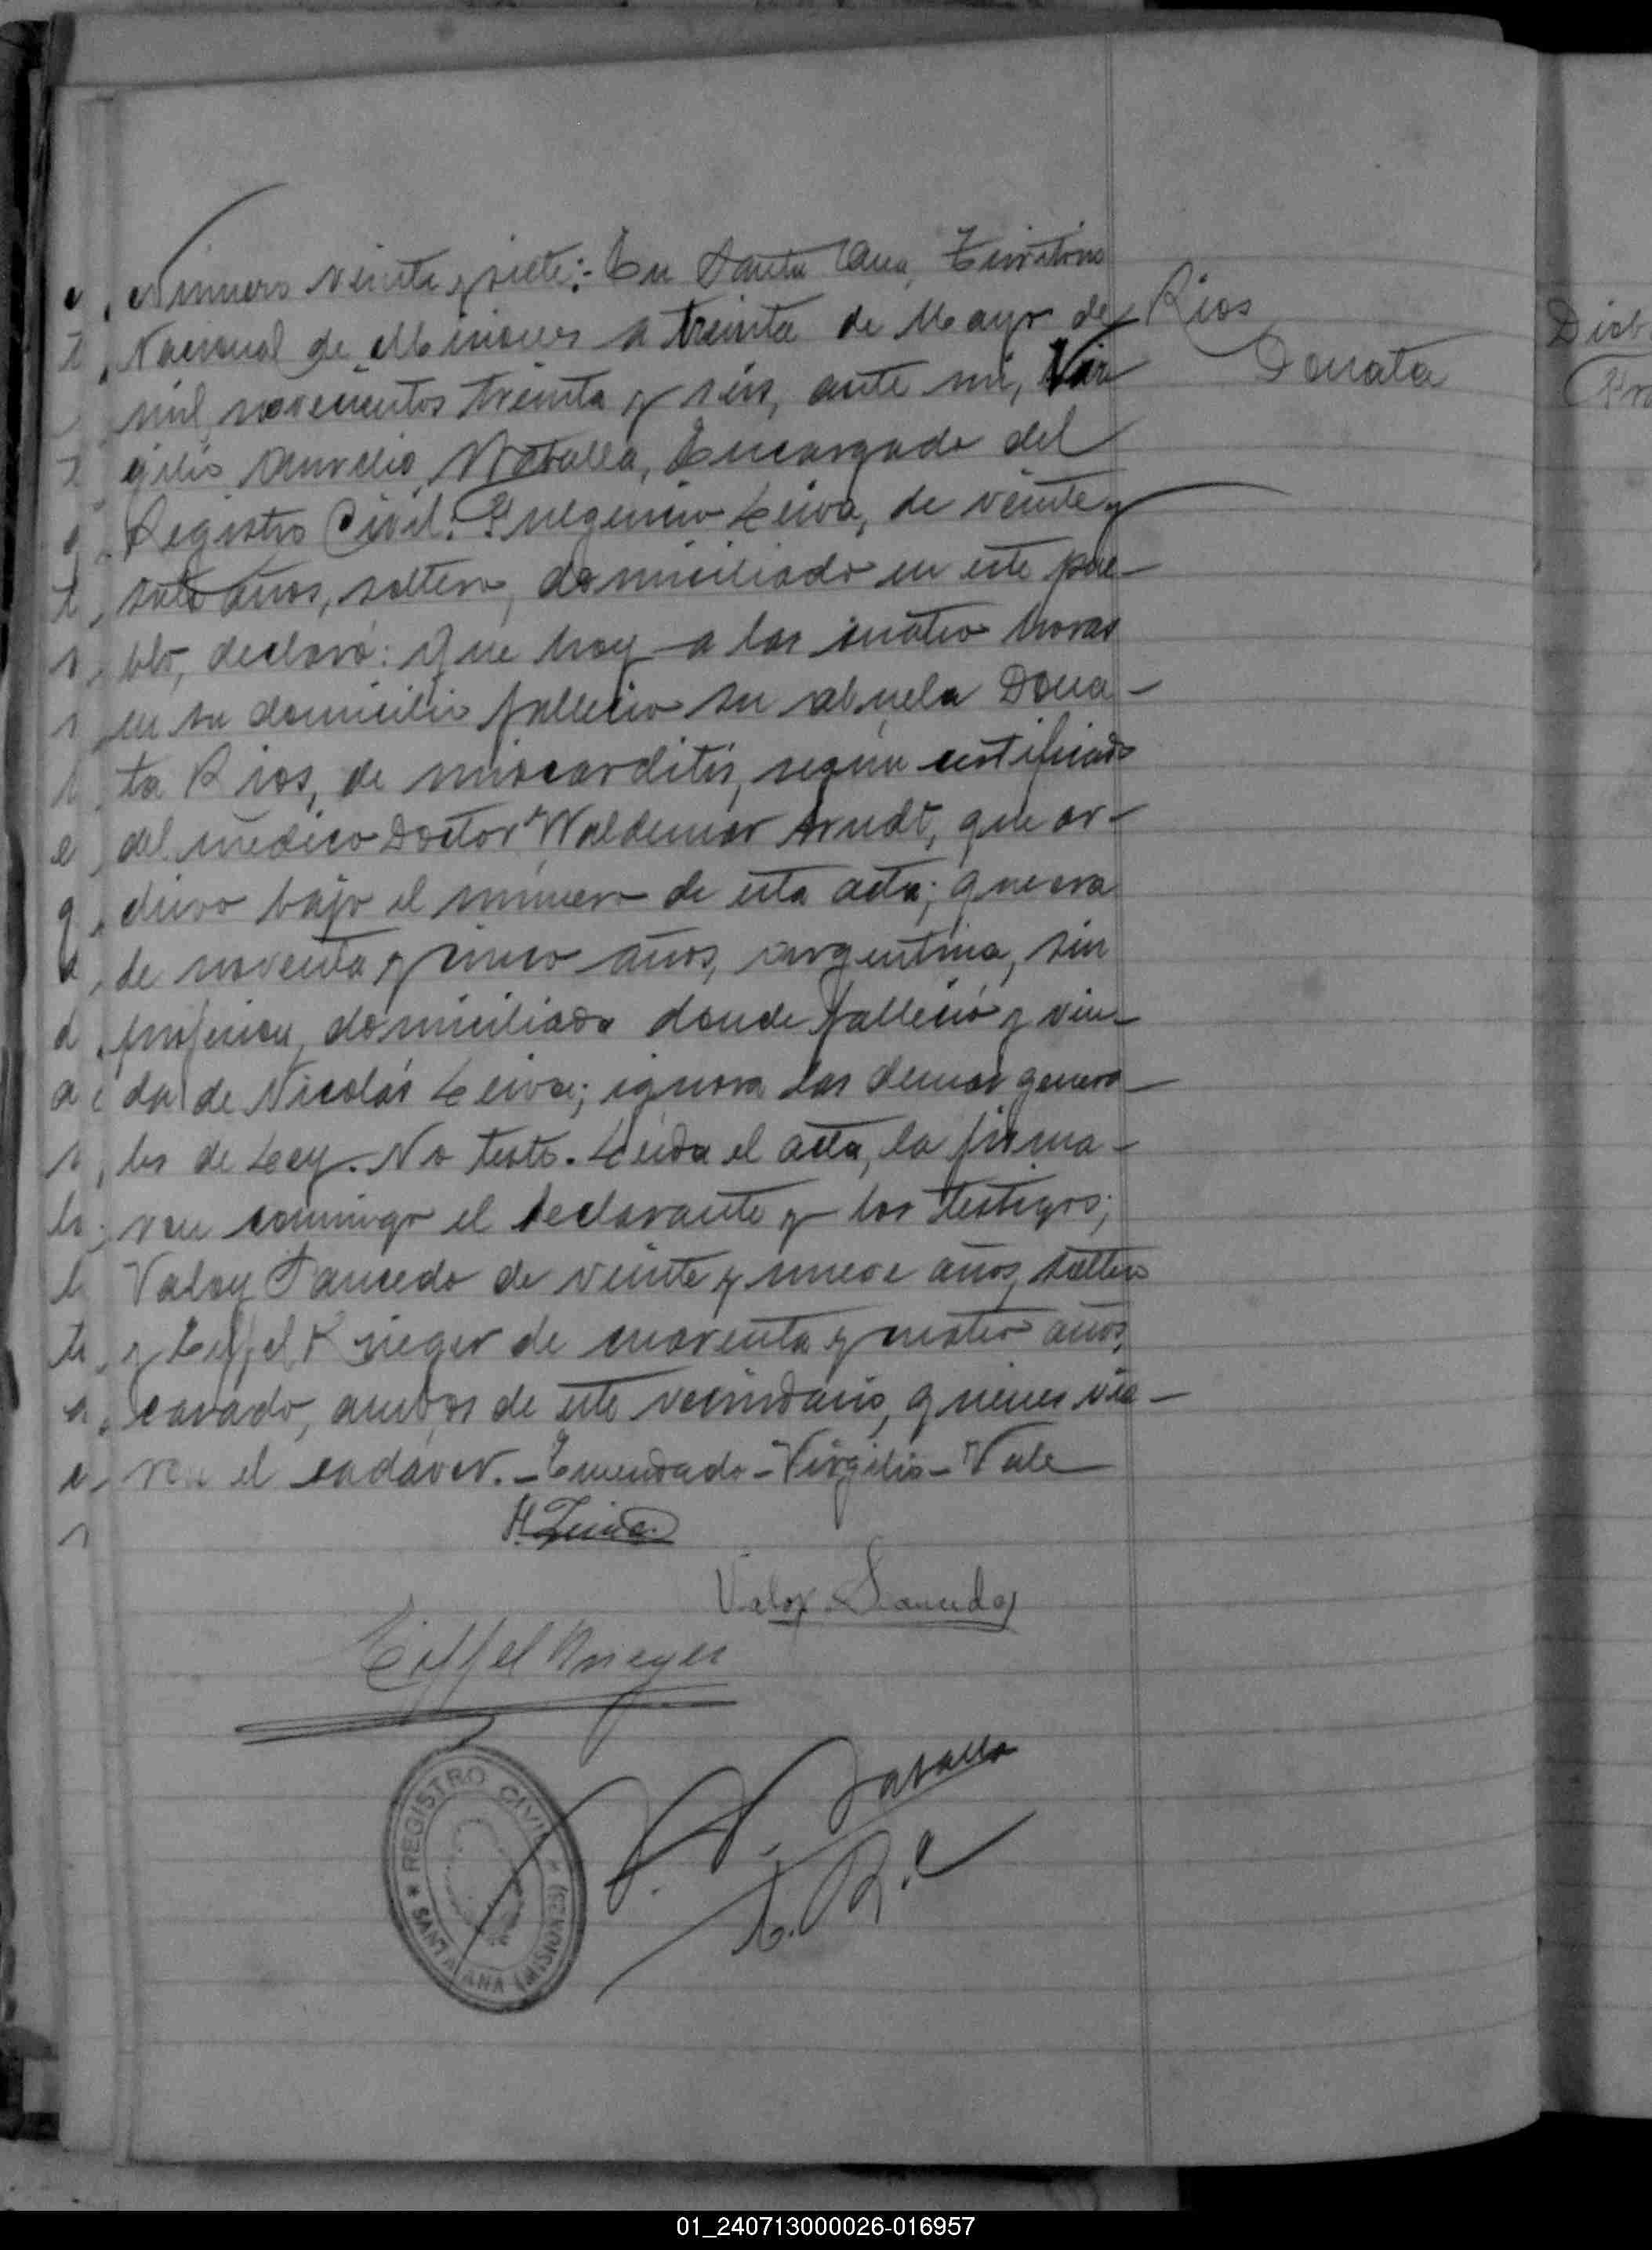 Número veinte y siete:- En Santa Ana, Territorio
Nacional de Misiones a treinta de Mayo de
mil novecientos treinta y seis, ante mi, Vir
gilio Aurelio Zaballa, Encargado del
Registro Civil: Fulgencio Leiva, de veinte y
siete años, soltero, domiciliado en este pue-
blo, declaró: Que hoy a las cuatro horas
en su domicilio fallecio su abuela Dona-
ta Rios, de miocarditis, según certificado
del médico Doctor Waldemar Arndt, que ar-
chivo bajo el número de esta acta; que era
de noventa y cinco años, argentina, sin
profesion, domiciliada donde falleció y viu-
da de Nicolás Leiva; ignora las demas genera-
les de Ley. No testó. Leida el acta, la firma-
ron conmigo el declarante y los testigos;
Valoy Saucedo de veinte y nueve años, soltero
y Eiffel Krieger de cuarenta y cuatro años,
casado, ambos de este vecindario, quienes vie-
ron el cadáver.- Enmendado-Virgilio-Vale
Rios
Donata
Leiva
Valoy Saucedo
Eiffel Krieger
V. A. Zaballa
E. R. C
REGISTRO CIVIL
SANTA ANA (MISIONES)
01_240713000026-016957